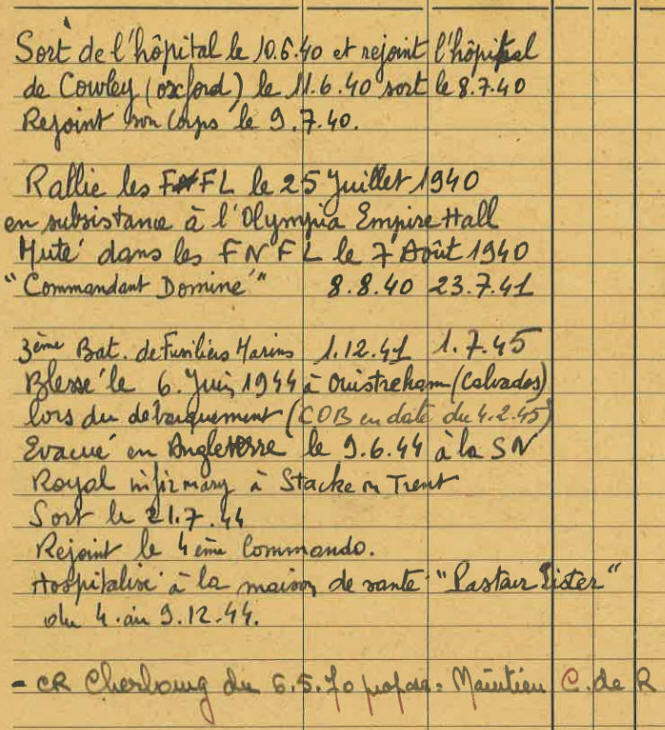 Sort de l'hôpital le 10.6.40 et rejoint l'hôpital
de Cowley (oxford) le 11.6.40 sort le 8.7.40
Rejoint son Corps le 9.7.40.
Rallie les FNFL le 25 Juillet 1940
en subsistance à l'Olympia Empire Hall
Muté dans les FNFL le 7 Août 1940
"Commandant Dominé" 8.8.40 23.7.41
3ème Bat. de Fusiliers Marins 1.12.41 1.7.45
Blessé le 6. Juin 1944 à Ouistreham (Calvados)
lors du débarquement (COB en date du 4.2.45)
Evacué en Angleterre le 9.6.44 à la SN
Royal infirmary à Stacke on Trent
Sort le 21.7.44
Rejoint le 4ème Commando.
Hospitalisé à la maison de santé "Pastair Sister"
du 4. au 9.12.44.
- CR Cherbourg du 6.5.70 propose: Maintien C. de R